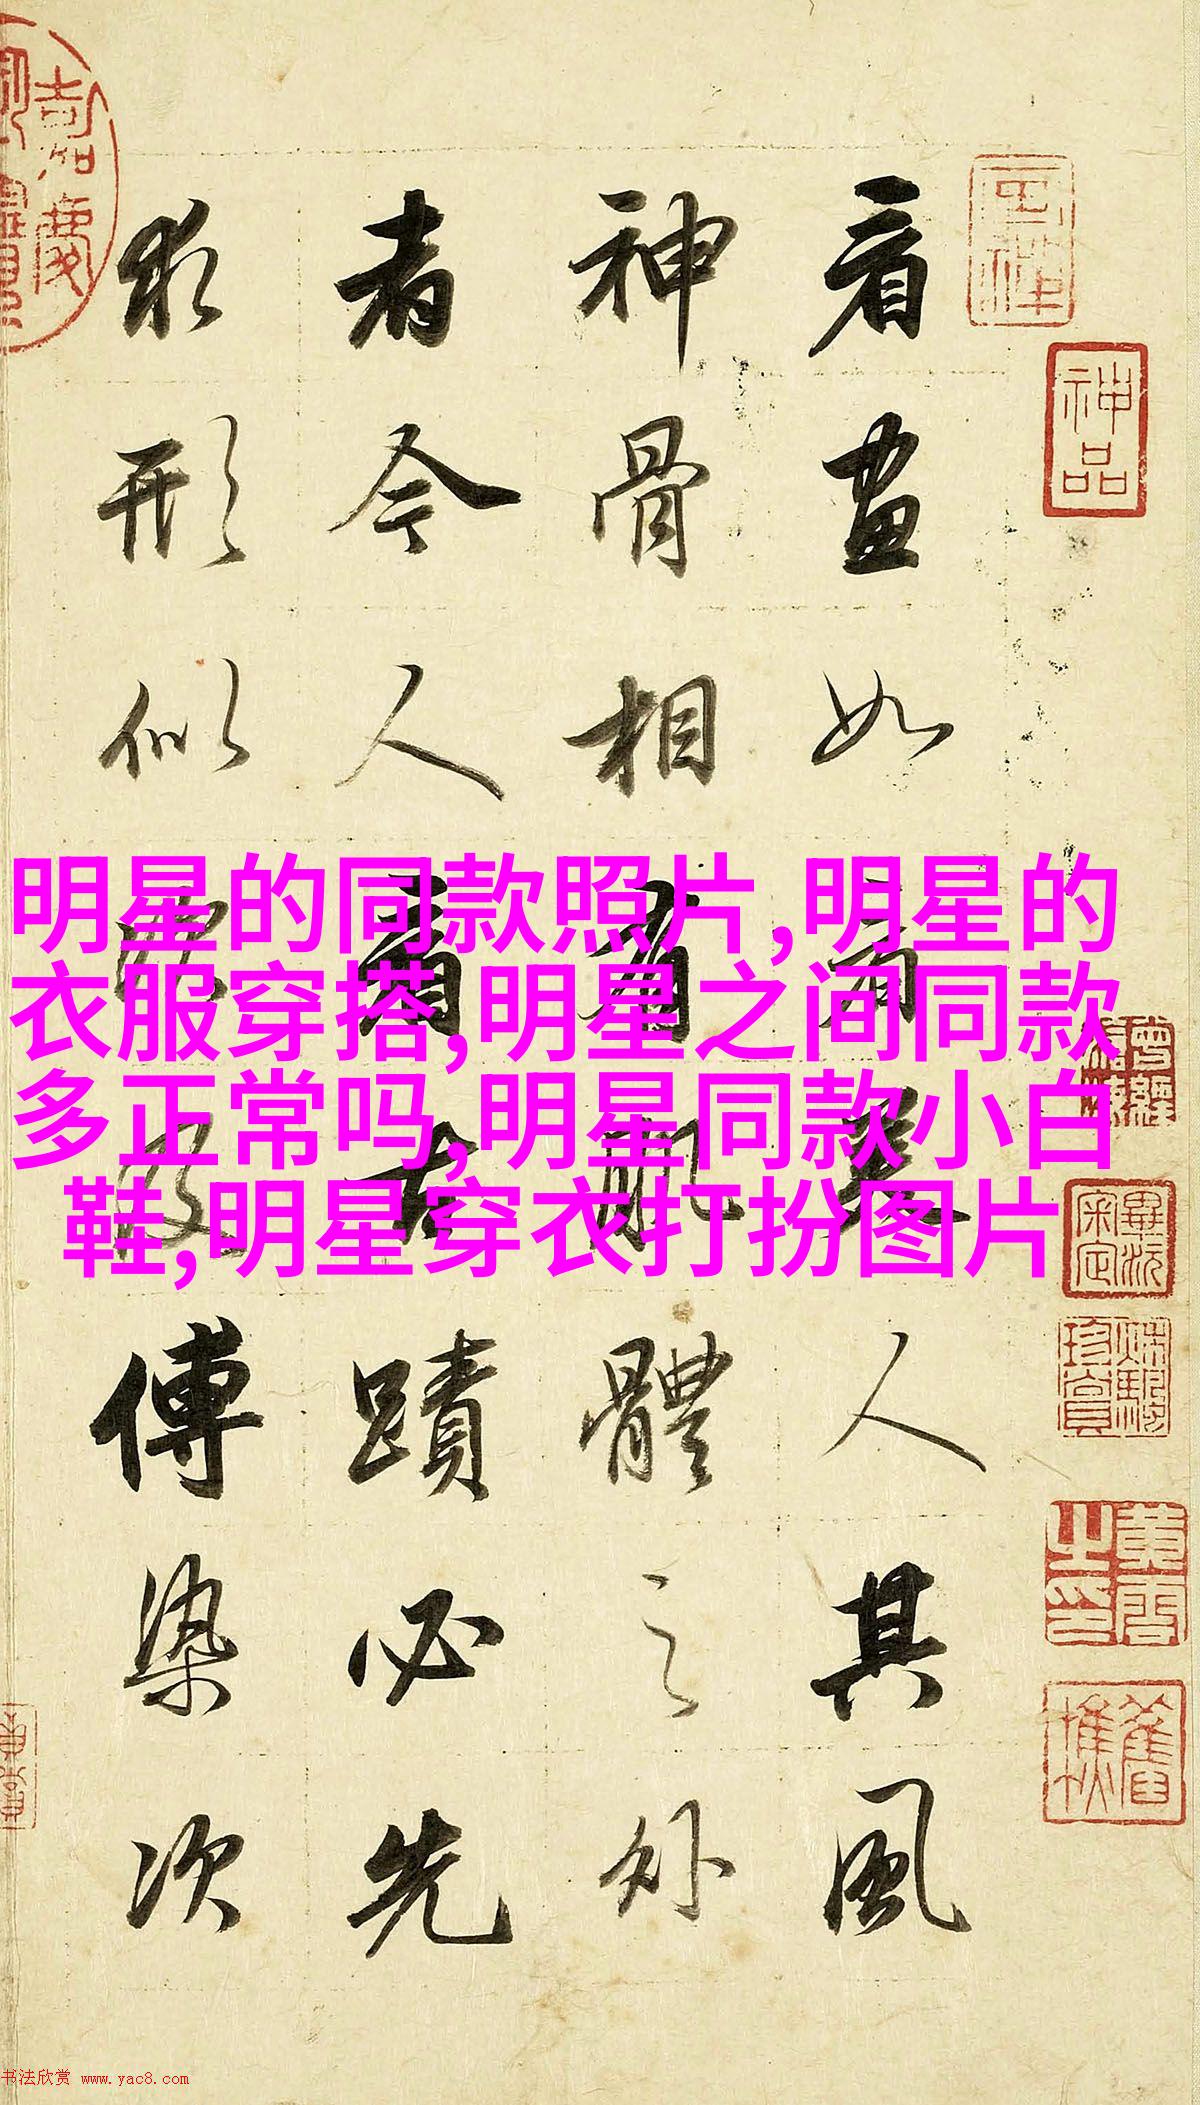 看畫如看美人其風
神骨相有肌體之外
者今人看古蹟必先
求形似次及傅染次
神品
明星的同款照片,明星的
衣服穿搭,明星之间同款
多正常吗,明星同款小白
鞋,明星穿衣打扮图片
书法欣赏 www.yac8.com